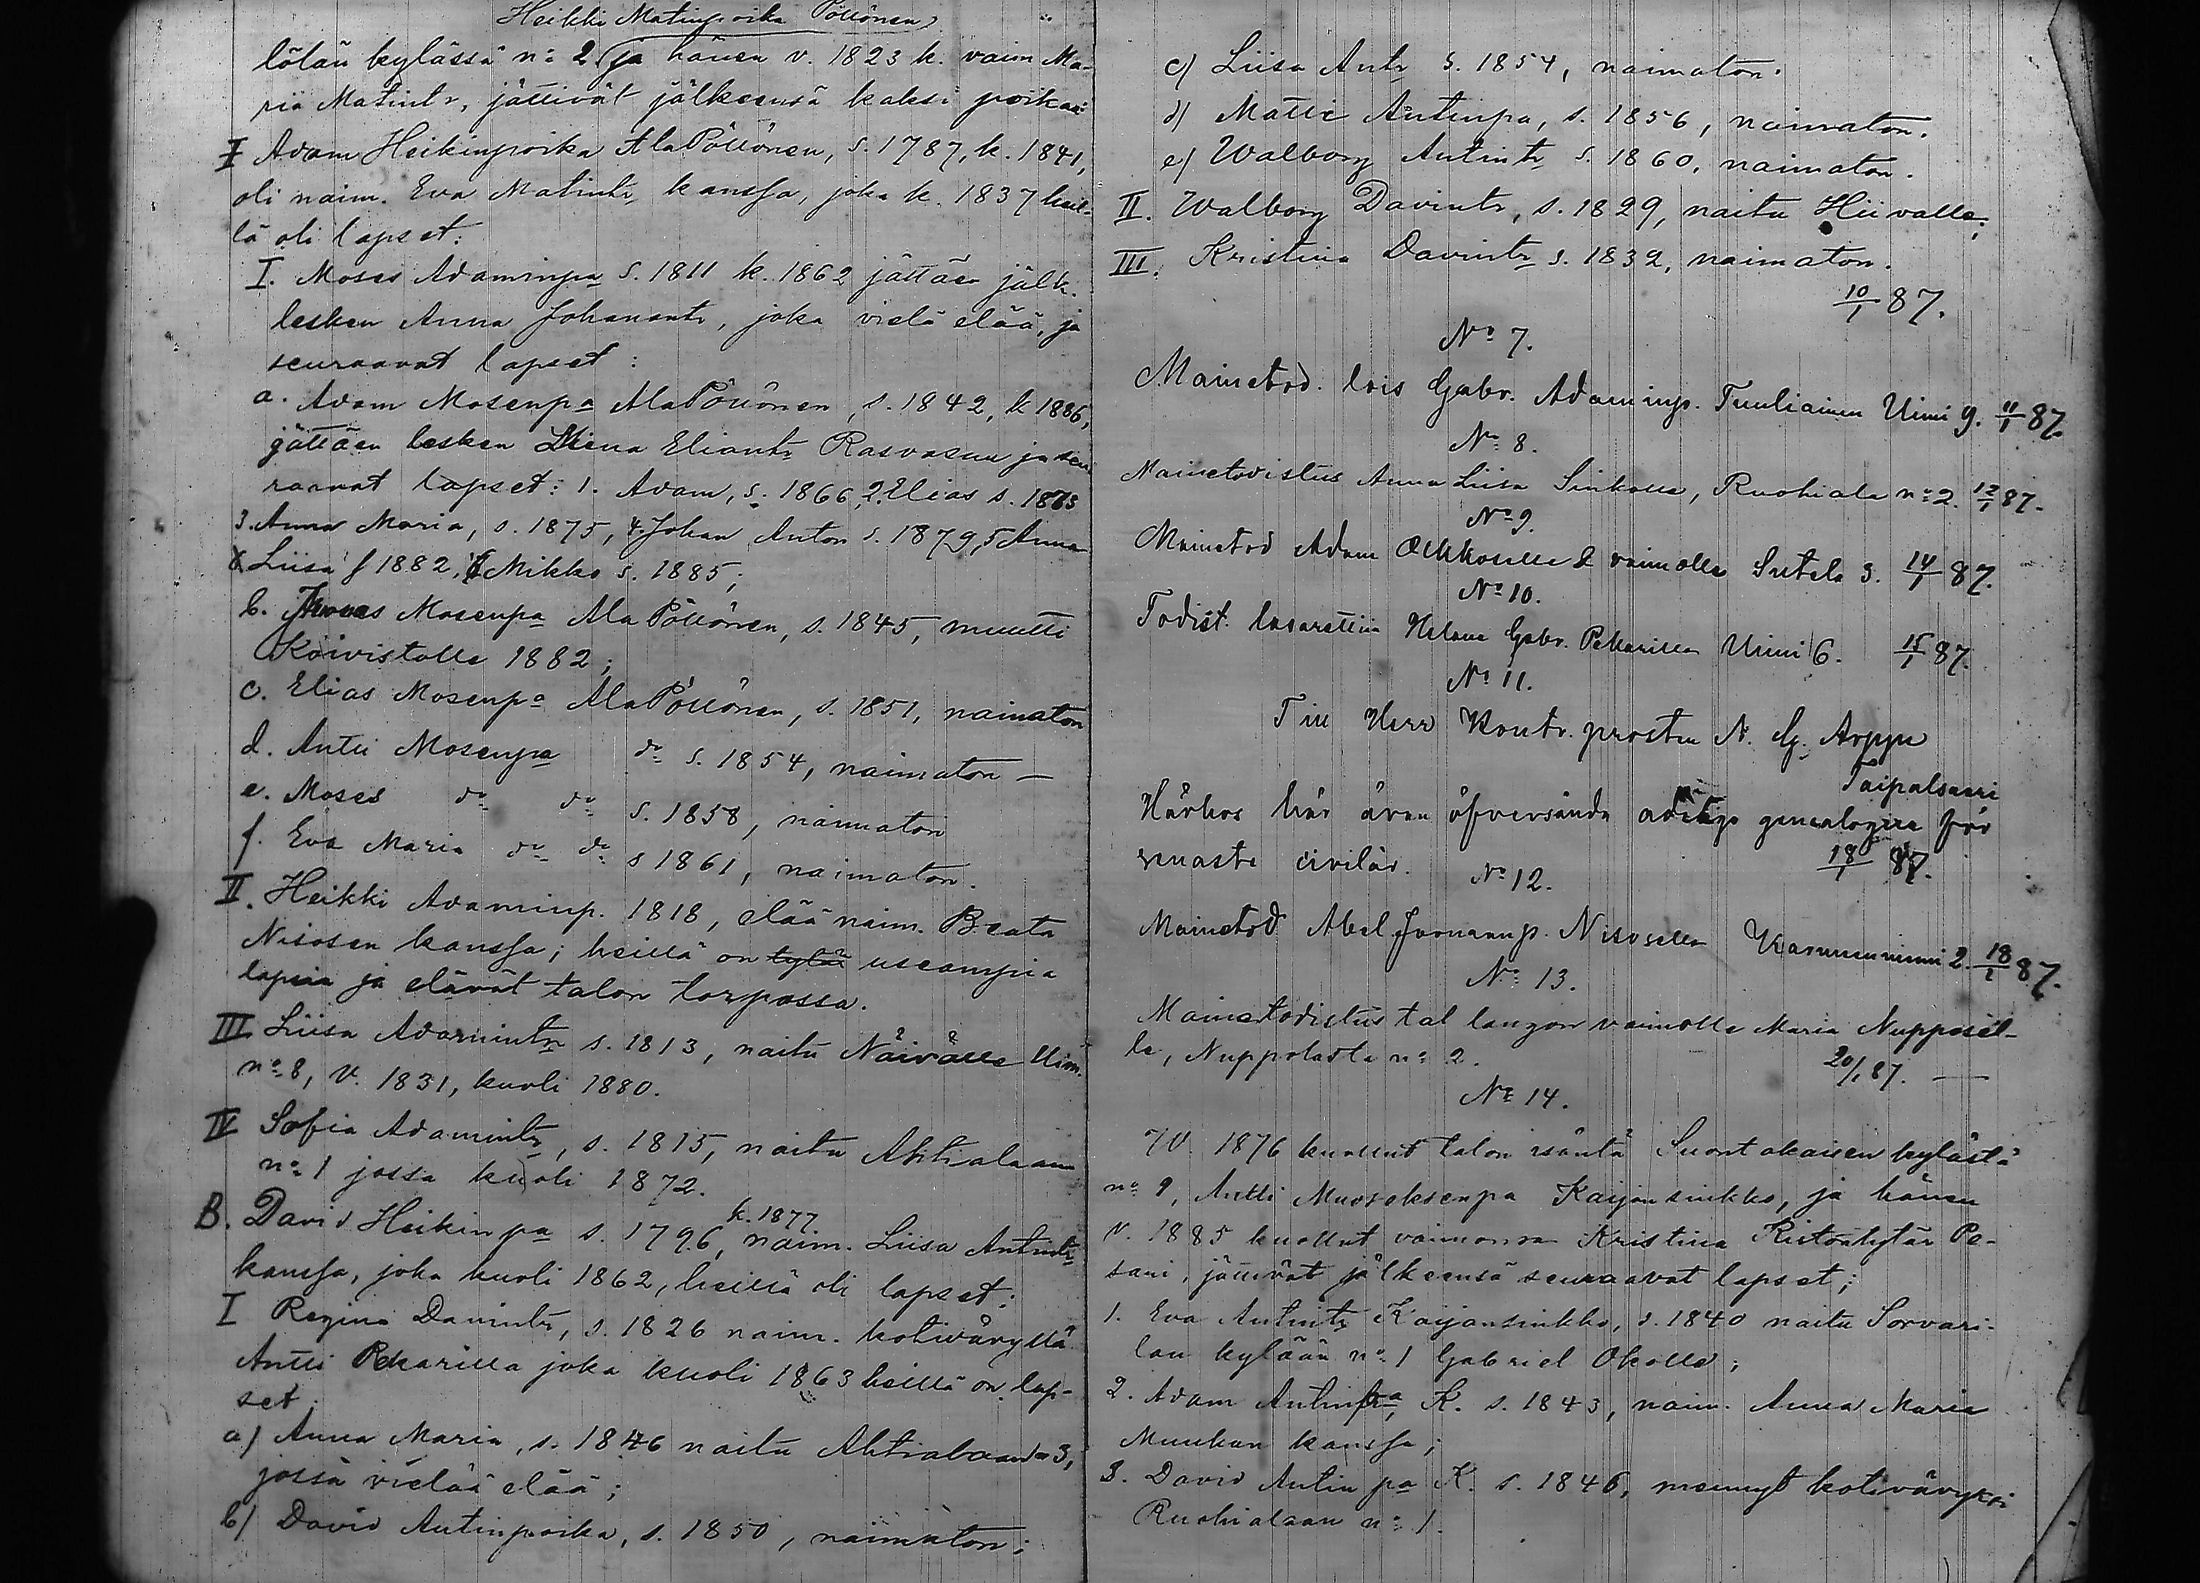 Heikki Matinpoika Pöllönen
lölän kylässä n:o 2 ja hänen v. 1823 k. vaim. Ma-
ria Matintr, jättivät jälkeensä kaksi poikaa:
I Adam Heikinpoika AlaPöllönen, s. 1787, k. 1841,
oli naim. Eva Matintr kanssa, joka k. 1837 heil-
lä oli lapset:
I. Moses Adaminpa s. 1811 k. 1862 jättäen jälk.
lesken Anna Johanantr, joka vielä elää, ja
seuraavat lapset:
a. Adam Mosenpa AlaPöllönen, s. 1842, k 1886,
jättäen lesken Liena Eliantr Rasvasen ja seu
raavat lapset: 1. Adam, s. 1866, 2. Elias s. 1873
3. Anna Maria, s. 1875, 4. Johan Anton s. 1879, 5 Anna
Liisa f 1882, 6 Mikko s. 1885;
b. Thomas Mosenpa AlaPöllönen, s. 1845, muutti
Koivistolle 1882;
c. Elias Mosenpa AlaPöllönen, s. 1851, naimaton
d. Antti Mosenpa do s. 1854, naimaton —
e. Moses do do s. 1858, naimaton
f. Eva Maria do do s 1861, naimaton.
II. Heikki Adaminp. 1818, elää naim. Beata
Nisosen kanssa; heillä on useampia
lapsia ja elävät talon torpassa.
III Liisa Adamintr s. 1813, naitu Näivälle Uimi
n:o 8, v. 1831, kuoli 1880.
IV Sofia Adamintr, s. 1815, naitu Ahtialaan
n:o 1 jossa kuoli 1872.
k. 1877
B. David Heikinpa s. 1796, naim. Liisa Antintr
kanssa, joka kuoli 1862, heillä oli lapset:
I Regina Davintr, s. 1826 naim. kotivävyllä
Antti Pekarilla joka kuoli 1863 heillä on lap-
set:
a) Anna Maria, s. 1846 naitu Ahtialaan n:o 3,
jossa vielä elää;
b) David Antinpoika, s. 1850, naimaton;
c) Liisa Antr s. 1854, naimaton.
d) Matti Antinpa, s. 1856, naimaton.
e) Walborg Antintr s. 1860, naimaton.
II. Walborg Davintr, s. 1829, naitu Hiivalle;
III. Kristina Davintr s. 1832, naimaton.
10/1 87.
No 7.
Mainetod. lois Gabr. Adaminp. Tuuliainen Uimi 9. 11/1 87.
No 8.
Mainetodistus Anna Liisa Sinkolle, Ruohiala n:o 2. 12/1 87.
No 9.
Mainetod Adam Olkkoselle & vaimolle Sutela 3. 14/1 87.
No 10.
Todist. lasarettiin Helena Gabr. Pekarille Uimi 6. 15/1 87.
No 11.
Till Herr Kontr. prosten N. G. Arppe
Taipalsaari
Härhos här även öfversända genealogien för
senaste civilår. 18/1 87.
No 12.
Mainetod Abel Joonanp. Nisoselle Kammenniemi 2. 18/1 87.
No 13.
Mainetodistus tal langon vaimolle Maria Nupposel-
le, Nuppolasta n:o 2. 20/1 87. —
No 14.
W. 1876 kuollut talon isäntä Suontakaisen kylästä
n:o 9, Antti Mooseksenpa Kaijansinkko, ja hänen
v. 1885 kuollut vaimonsa Kristina Ristontytär Pe-
sani, jättivät jälkeensä seuraavat lapset;
1. Eva Antintr Kaijansinkko, s. 1840 naitu Sorvari-
lan kylään n:o 1 Gabriel Okolle;
2. Adam Antinpa, K. s. 1843, naim. Anna Maria
Muukan kanssa;
3. David Antinpa K. s. 1846, mennyt kotivävyksi
Ruohialaan n:o 1.